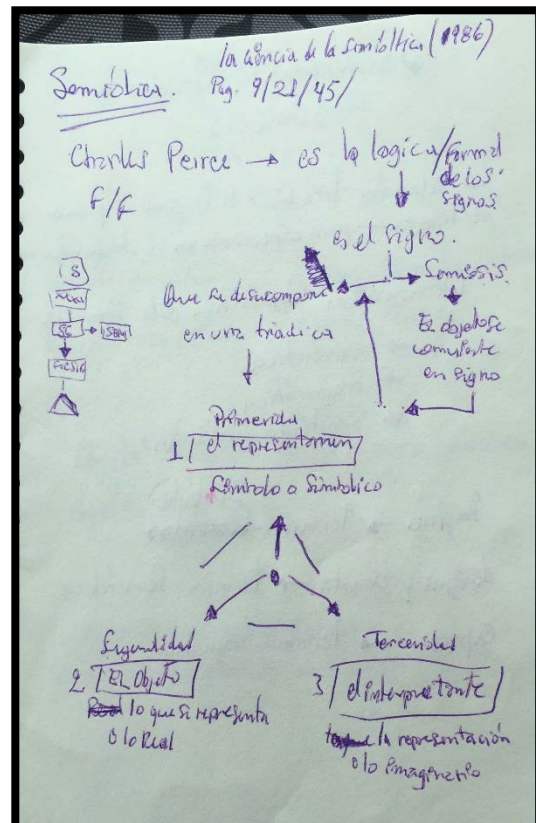 la Ciencia de la Semiótica (1986)
Semiótica. Pag. 9/21/45/
Charles Peirce → es la logica/formal
de los
signos
F/F
es el signo.
Semiosis.
Que se descompone
en una triadica
El objeto se
convierte
en signo
S
SG → SEM
Primeridad
1/ el representamen
Símbolo o Simbolico
Segundidad
2 / EL Objeto
lo que se representa
o lo Real
Terceridad
3/ el interpretante
la representación
o lo imaginario